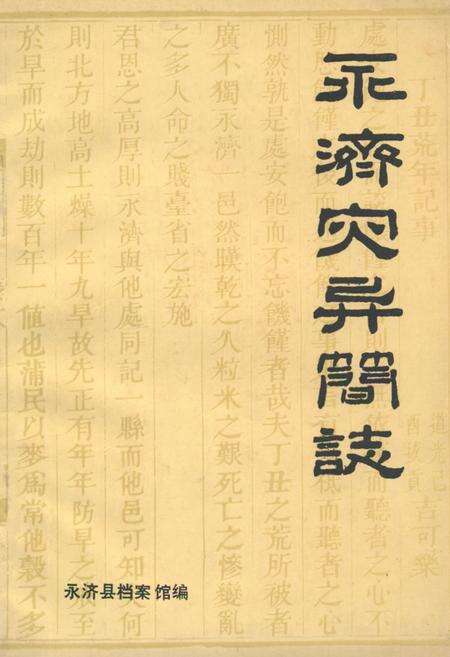 永濟灾异簡誌
丁丑荒年記事
惻然孰是處安飽而不忘饑饉者哉夫丁丑之荒所被者
廣不獨永濟一邑然暵乾之久粒米之艱死亡之慘變亂
之多人命之賤臺省之宏施
君恩之高厚則永濟與他處同記一縣而他邑可知矣何
則北方地高土燥十年九旱故先正有年年防旱之至
於旱而成劫則數百年一値也蒲民以麥爲常他穀不多
永济县档案馆编